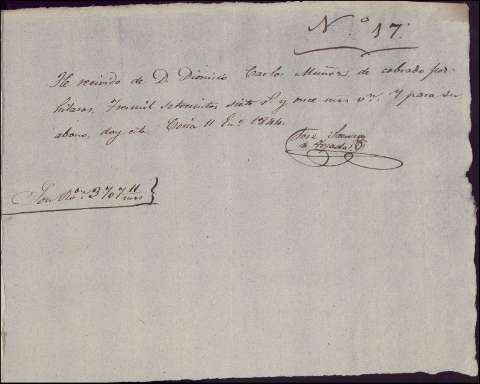 N.º 17.
He recivido de D. Dionicio Carlos Muñoz, de cobrado por
hilaras, Tresmil setecientos siete r.s y once mrs v.n. Y para su
abono, doy este. Coria 11 En.º 1844.
Jose
de
Son R.s v.n 3707,, 11 mrs